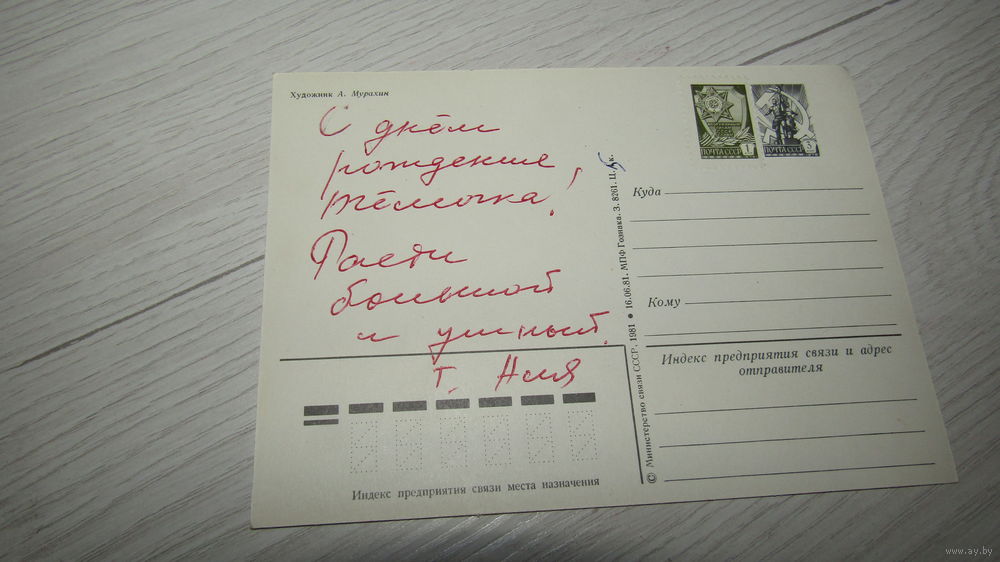 Художник А. Мурахин
С днём
рождения,
тёмочка.
Расти
большой
и умный.
т. Аля
Индекс предприятия связи места назначения
© Министерство связи СССР. 1981 ● 16.06.81. МПФ Гознака. З. 8261. Ц. к.
ПОЧТА СССР 1
ПОЧТА СССР 3
Куда
Кому
Индекс предприятия связи и адрес
отправителя
www.ay.by